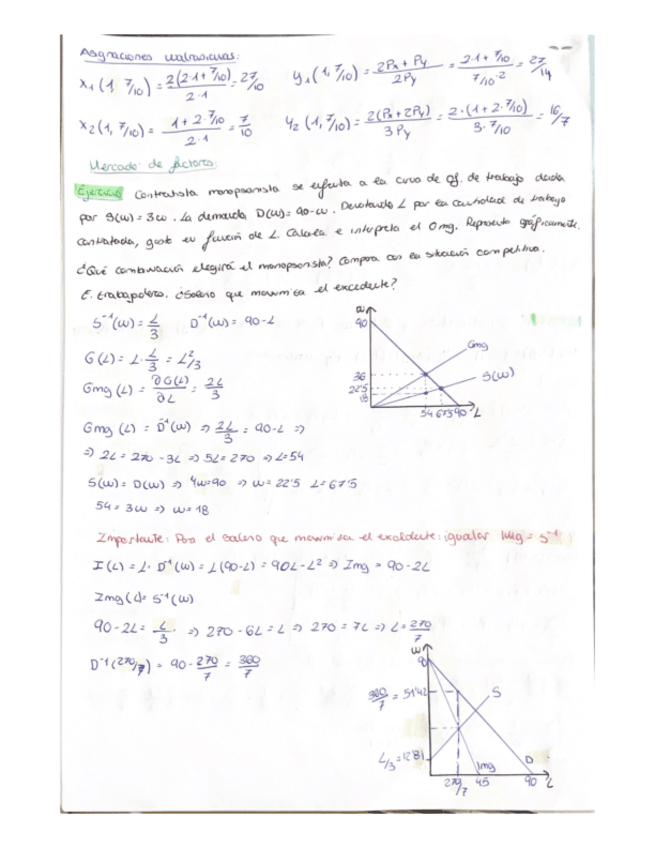 Asignaciones walrasianas:
x₁(1, 7/10) = 2(2·1 + 7/10) / 2·1 = 27/10   y₁(1, 7/10) = 2Px + Py / 2Py = 2·1 + 7/10 / 7/10·2 = 27/14
x₂(1, 7/10) = 1 + 2·7/10 / 2·1 = 7/10   y₂(1, 7/10) = 2(Px + 2Py) / 3Py = 2·(1 + 2·7/10) / 3·7/10 = 16/7
Mercado de factores:
Ejercicio Contratista monopsonista se enfrenta a la curva de of. de trabajo dada
por S(w) = 3w. La demanda D(w) = 90-w. Denotando L por la cantidad de trabajo
contratada, gasto en función de L. Calcula e interpreta el Gmg. Representa gráficamente.
¿Qué combinación elegirá el monopsonista? Compara con la situación competitiva.
E. trabajadores. ¿Salario que maximisa el excedente?
S⁻¹(w) = L/3   D⁻¹(w) = 90-L
G(L) = L·L/3 = L²/3
Gmg(L) = ∂G(L)/∂L = 2L/3
Gmg(L) = D⁻¹(w) ⇒ 2L/3 = 90-L ⇒
⇒ 2L = 270 - 3L ⇒ 5L = 270 ⇒ L = 54
S(w) = D(w) ⇒ 4w = 90 ⇒ w = 22'5 L = 67'5
54 = 3w ⇒ w = 18
w
90
Gmg
S(w)
36
22'5
18
54 67'5 90 L
Importante: Para el salario que maximisa el excedente: igualar Img = S⁻¹
I(L) = L·D⁻¹(w) = L(90-L) = 90L - L² ⇒ Img = 90-2L
Img(L) = S⁻¹(w)
90-2L = L/3 ⇒ 270 - 6L = L ⇒ 270 = 7L ⇒ L = 270/7
D⁻¹(270/7) = 90 - 270/7 = 360/7
w
90
360/7 = 51'42
S
L/3 = 12'81
Img
D
270/7 45 90 L